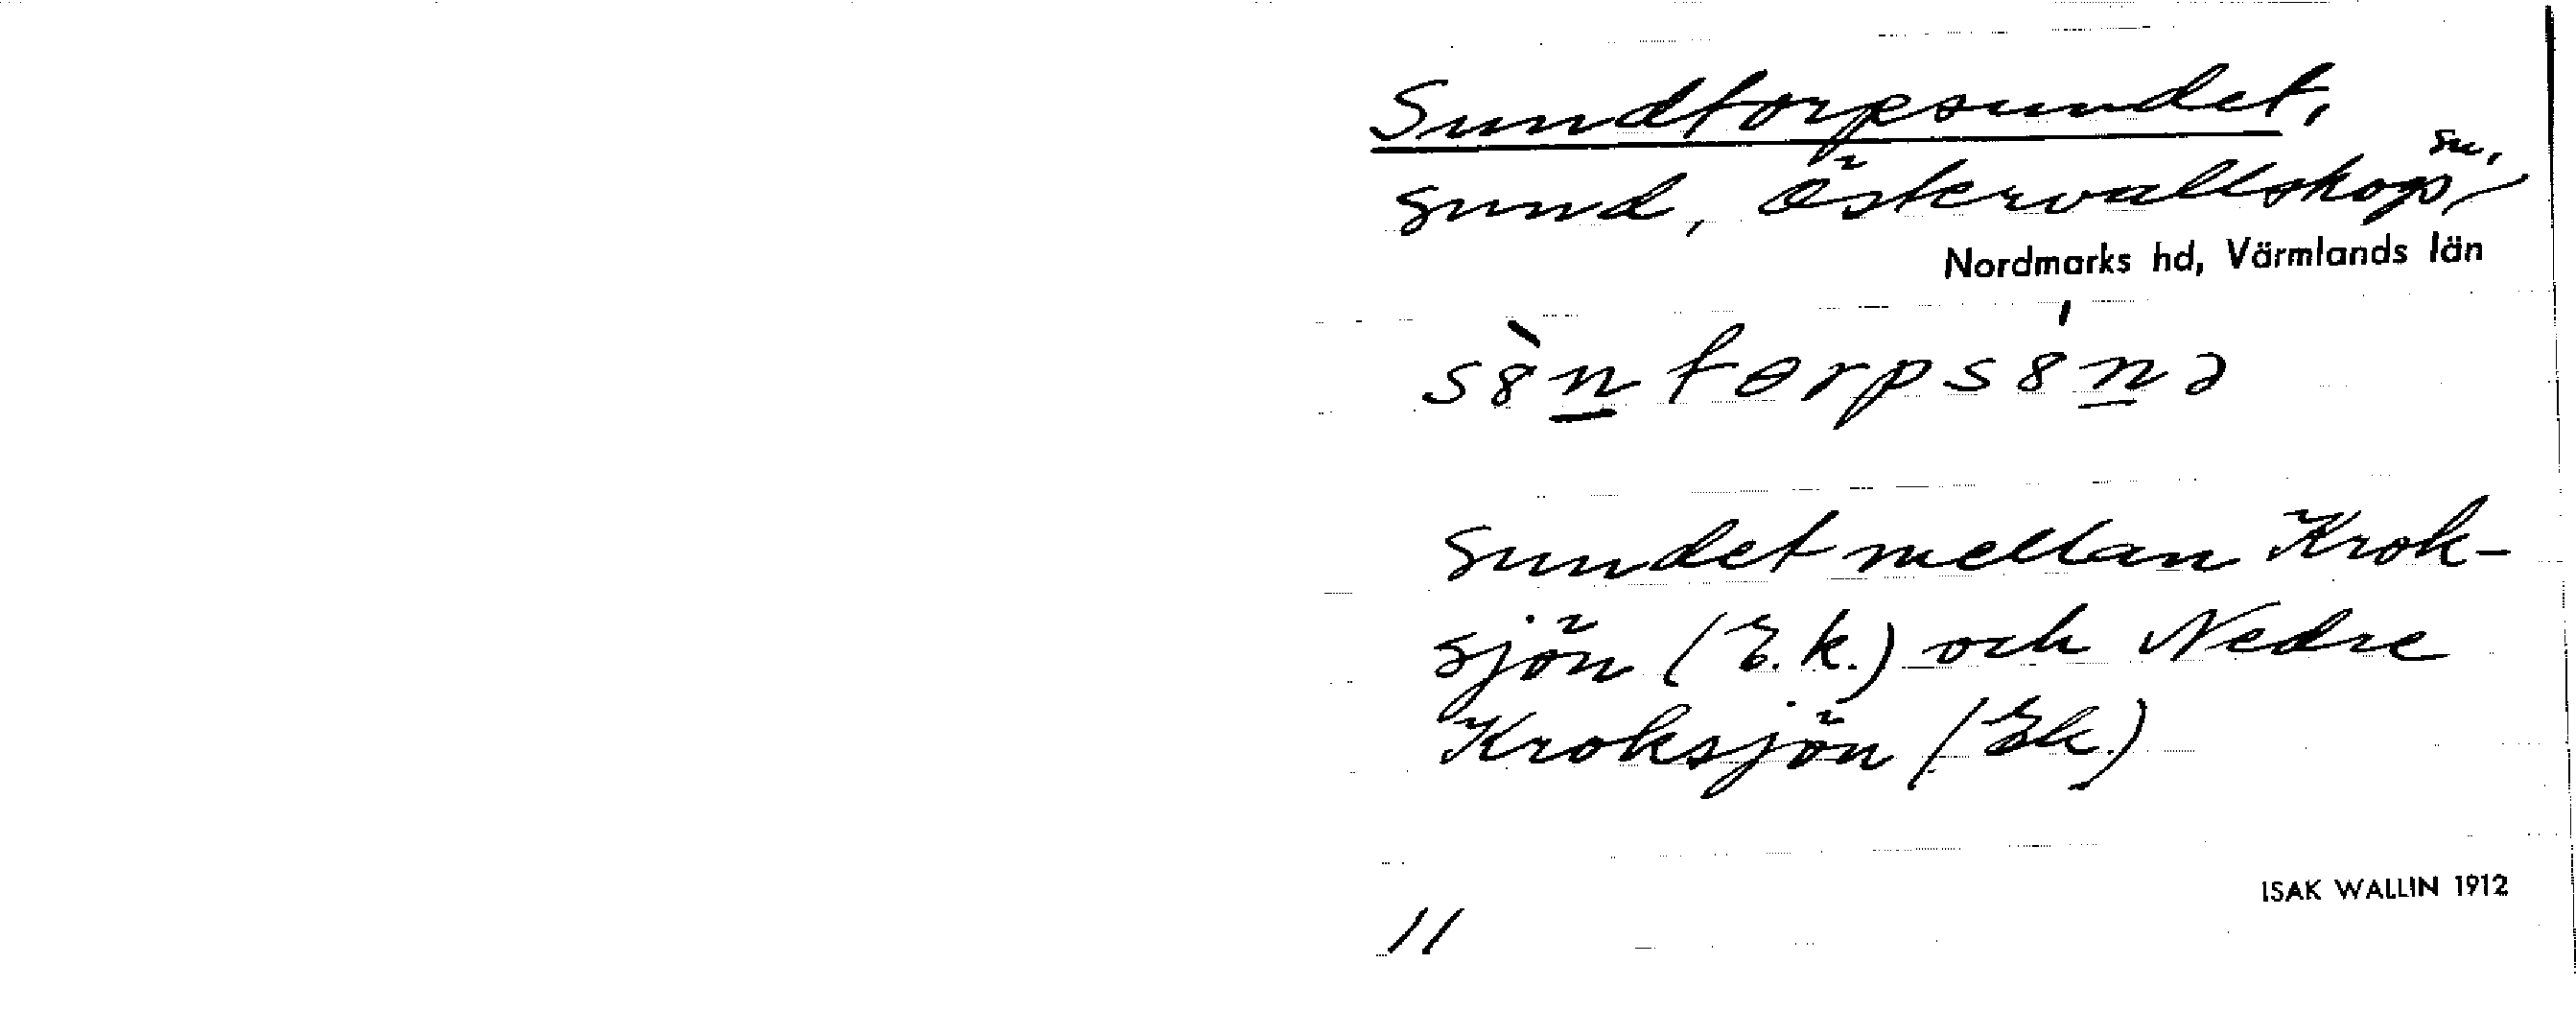 Sundtorpsundet,
sund, Östervallskogs sn,
Nordmarks hd, Värmlands län
s8̀n̲tɵrps8́n̲ə
Sundet mellan Krok-
sjön (E.k.) och Nedre
Kroksjön (Ek.)
ISAK WALLIN 1912
11